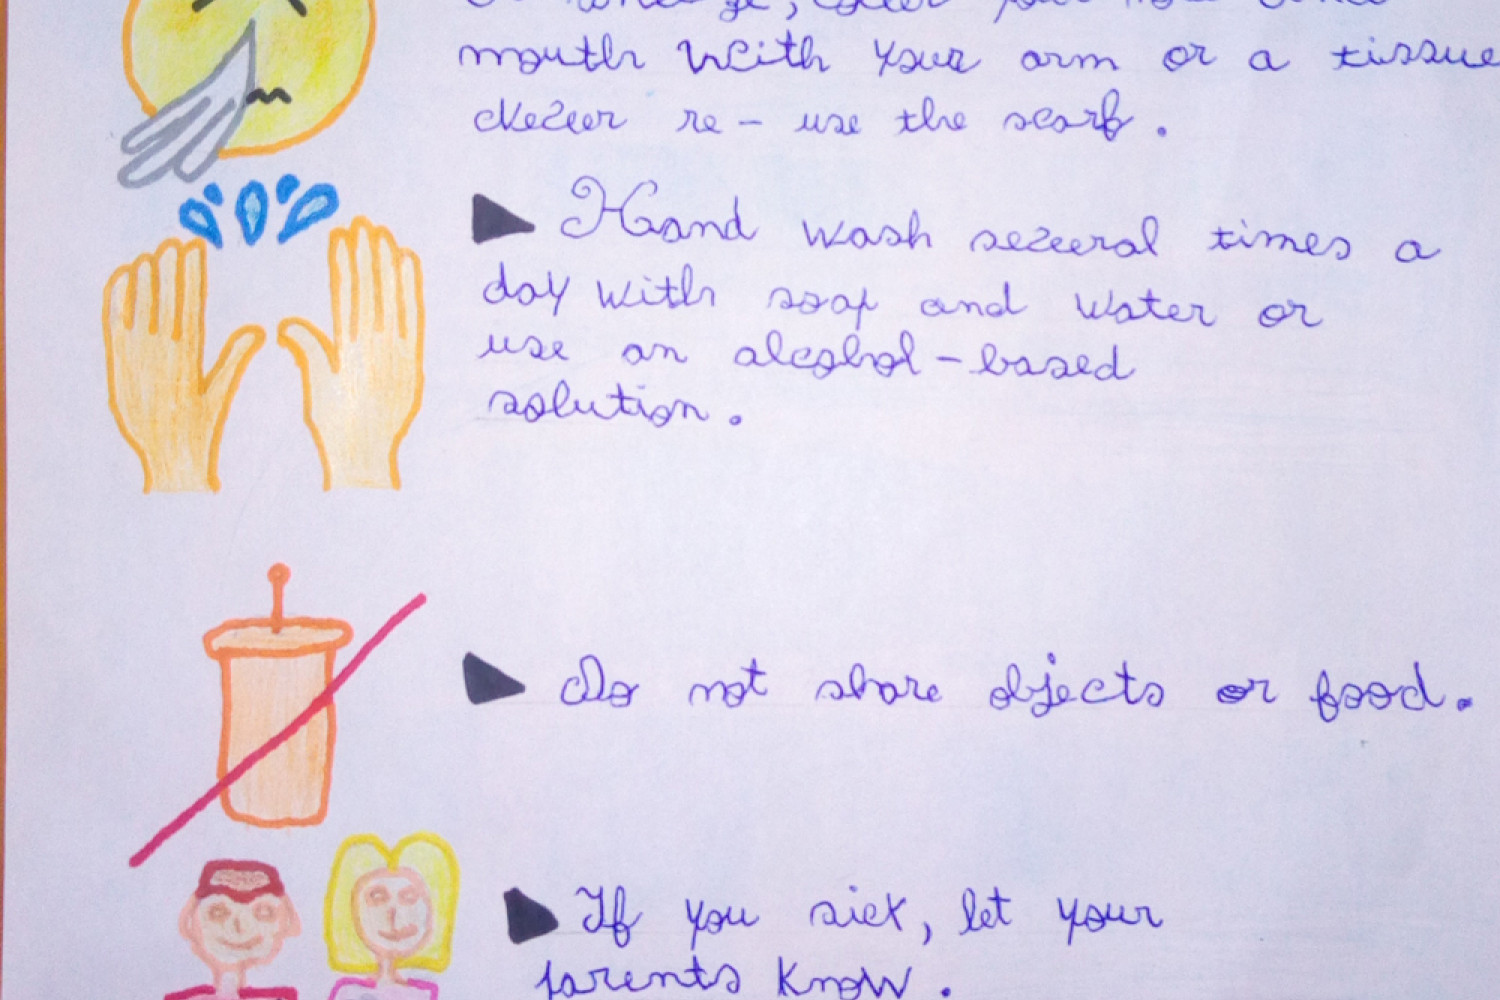 mouth with your arm or a tissue
never re-use the scarf.
Hand wash several times a
day with soap and water or
use an alcohol-based
solution.
Do not share objects or food.
If you sick, let your
parents know.